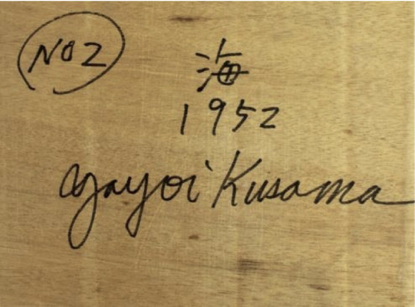 NO2
海
1952
Yayoi Kusama